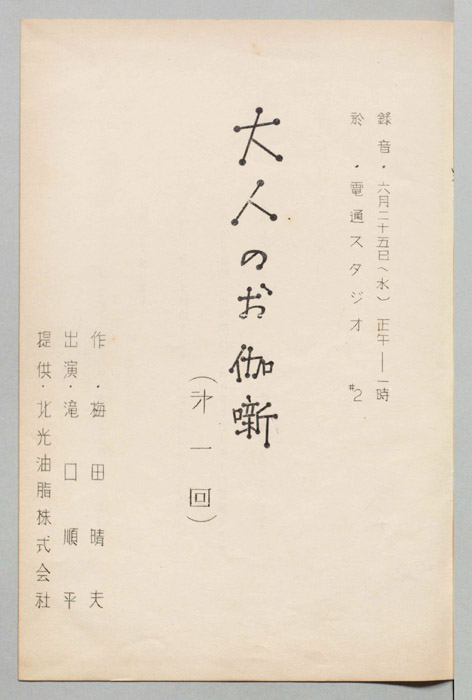 録音・六月二十五日(水)正午——一時
於・電通スタジオ #2
大人のお伽噺
(㐧一回)
作・梅田晴夫
出演・滝口順平
提供・北光油脂株式会社